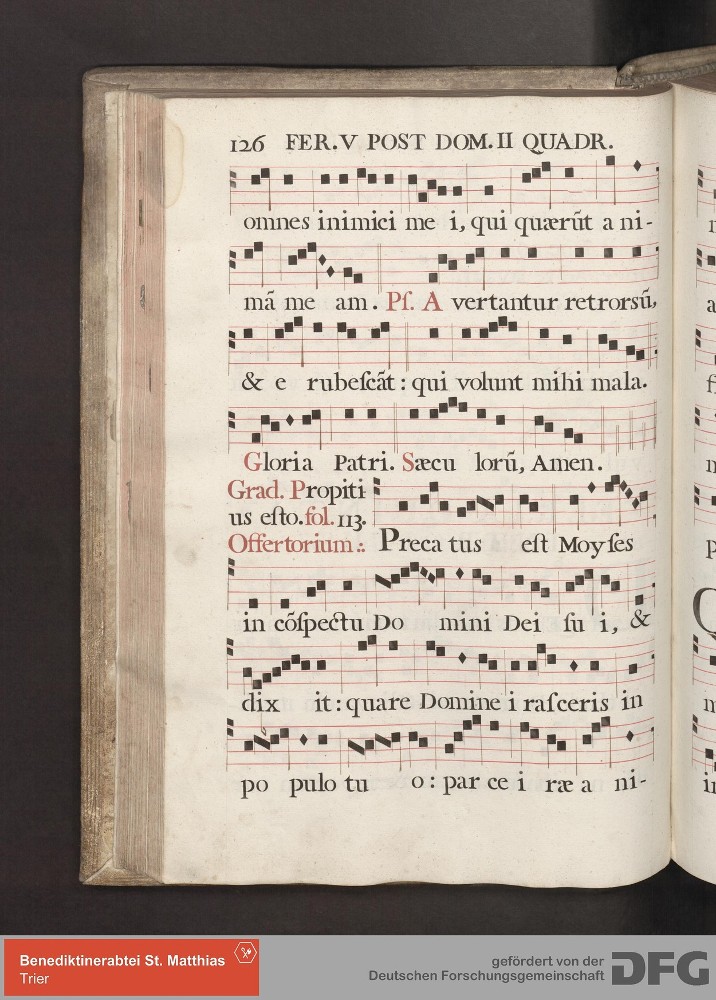 126 FER. V POST DOM. II QUADR.
omnes inimici me i, qui quærũt a ni-
mã me am. Pſ. A vertantur retrorsũ,
& e rubeſcãt: qui volunt mihi mala.
Gloria Patri. Sæcu lorũ, Amen.
Grad. Propiti
us eſto. fol. 113.
Offertorium:. Preca tus eſt Moyſes
in cõſpectu Do mini Dei ſu i, &
dix it: quare Domine i raſceris in
po pulo tu o: par ce i ræ a ni-
Benediktinerabtei St. Matthias
Trier
gefördert von der
Deutschen Forschungsgemeinschaft DFG